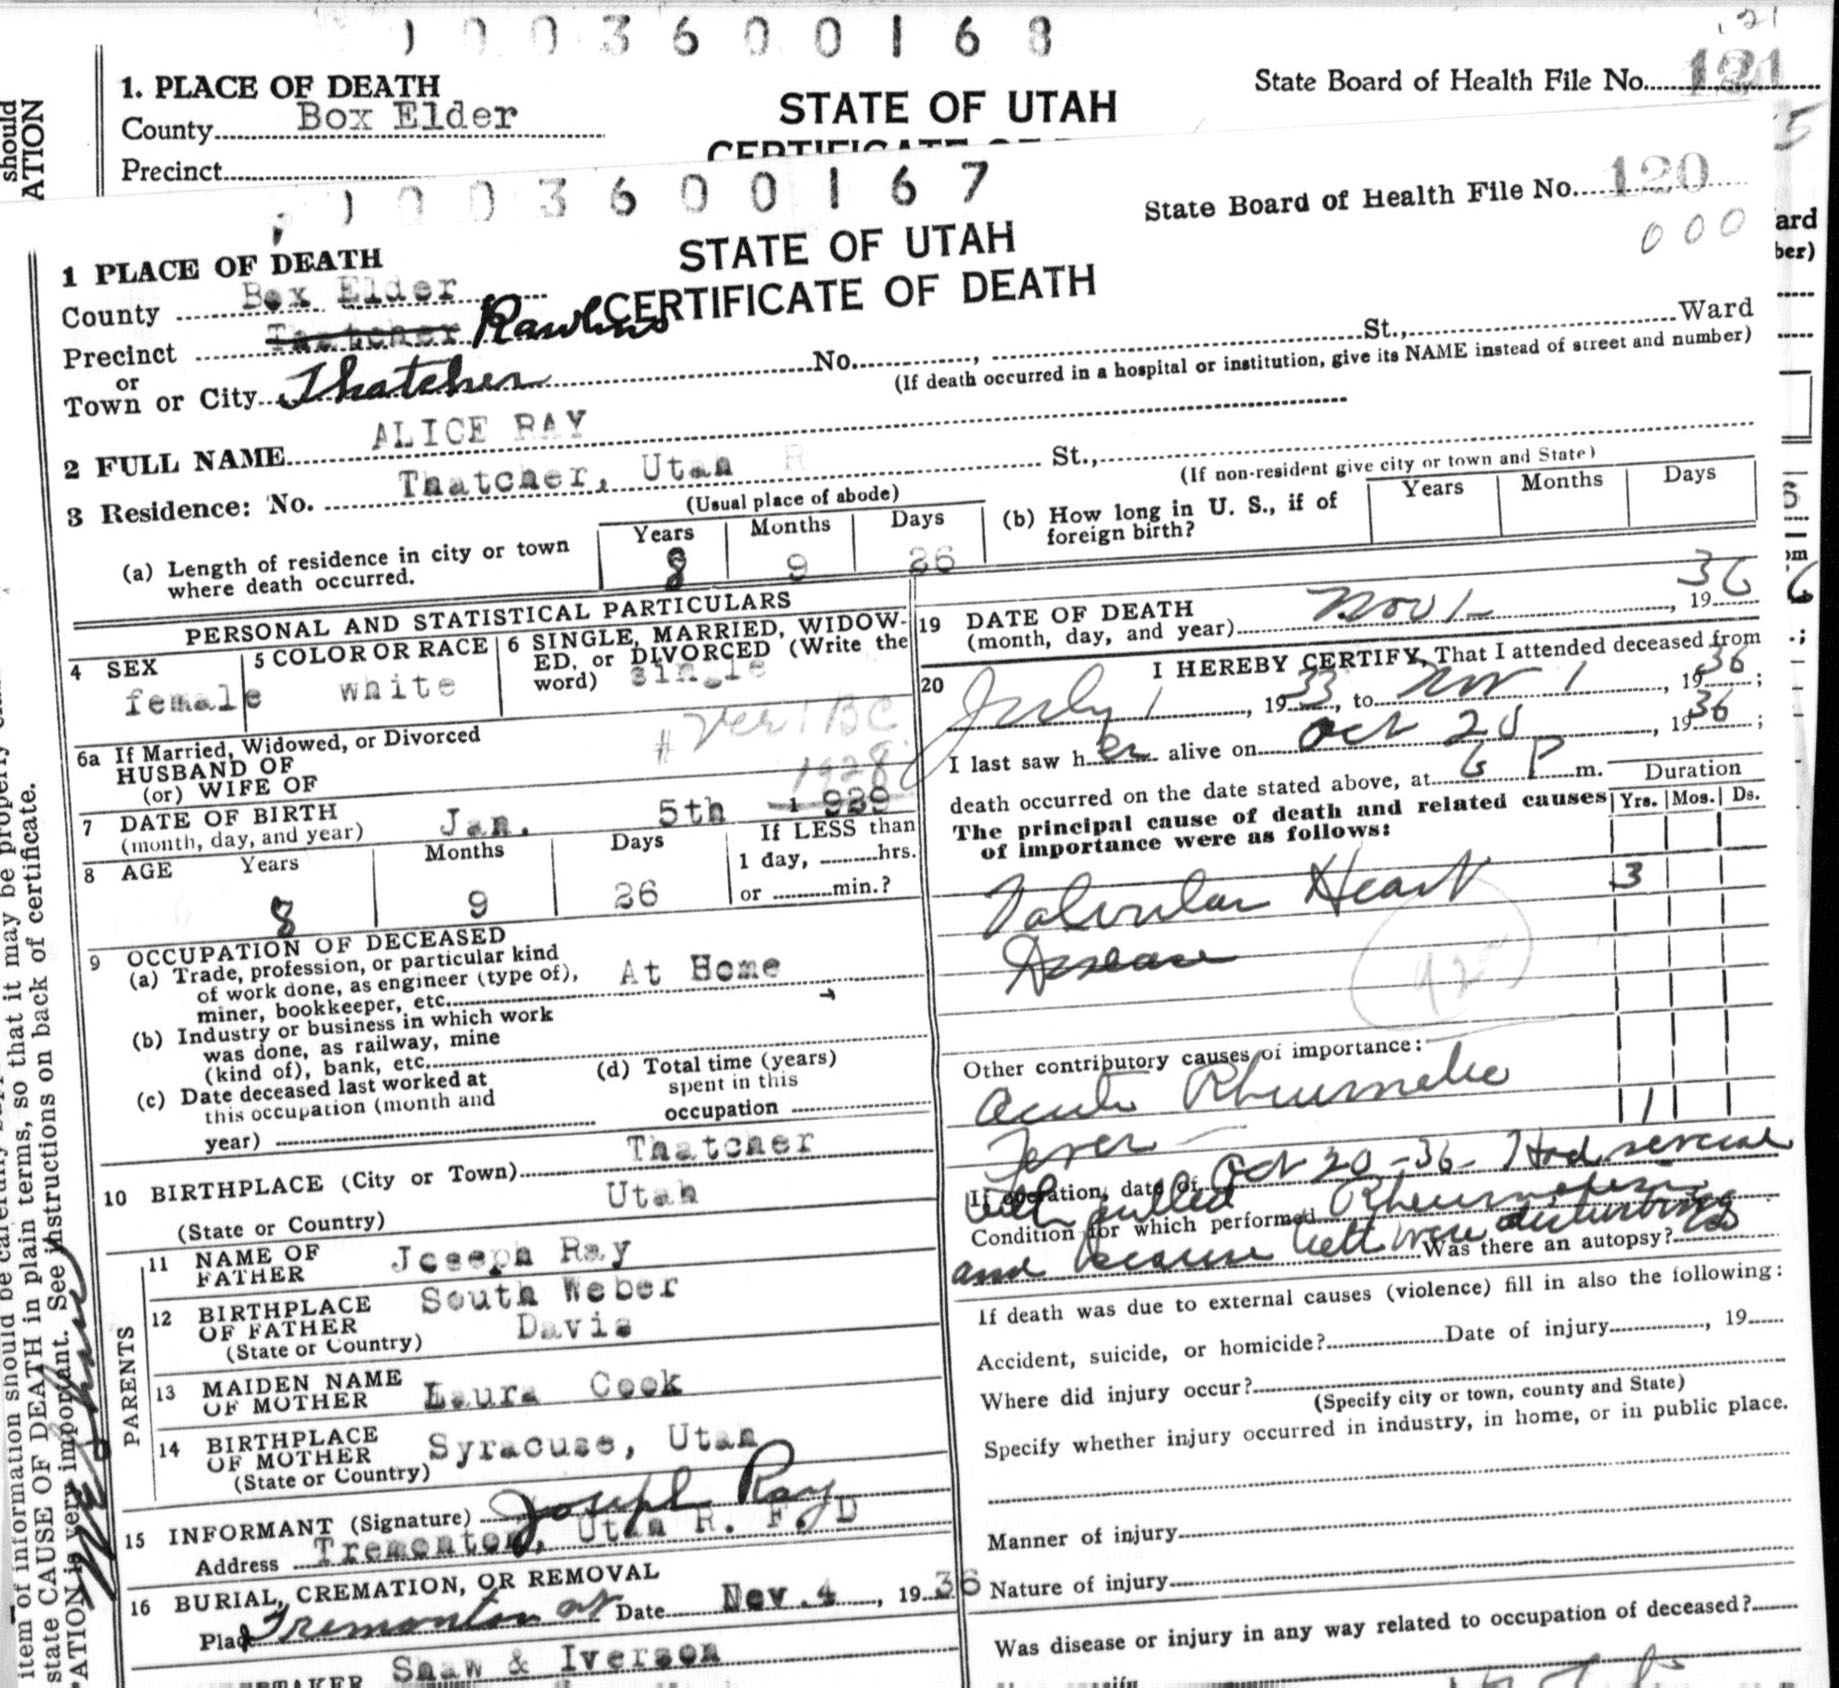 1003600168
1. PLACE OF DEATH
State Board of Health File No. 121
County Box Elder
STATE OF UTAH
Precinct
should
ATION
1003600167
State Board of Health File No. 120
000
1 PLACE OF DEATH
STATE OF UTAH
County Box Elder
CERTIFICATE OF DEATH
Precinct Thatcher Rawlins
or
Town or City Thatcher No. , St., Ward
(If death occurred in a hospital or institution, give its NAME instead of street and number)
2 FULL NAME ALICE RAY
3 Residence: No. Thatcher, Utah R St.,
(Usual place of abode) (If non-resident give city or town and State)
(a) Length of residence in city or town where death occurred. Years 8 Months 9 Days 26
(b) How long in U. S., if of foreign birth? Years Months Days
PERSONAL AND STATISTICAL PARTICULARS
4 SEX female
5 COLOR OR RACE white
6 SINGLE, MARRIED, WIDOWED, or DIVORCED (Write the word) single
6a If Married, Widowed, or Divorced
HUSBAND OF
(or) WIFE OF
# Ver 1 BC
1928
7 DATE OF BIRTH (month, day, and year) Jan. 5th 1929
8 AGE Years 8 Months 9 Days 26
If LESS than 1 day, hrs. or min.?
9 OCCUPATION OF DECEASED
(a) Trade, profession, or particular kind of work done, as engineer (type of), miner, bookkeeper, etc. At Home
(b) Industry or business in which work was done, as railway, mine (kind of), bank, etc.
(c) Date deceased last worked at this occupation (month and year)
(d) Total time (years) spent in this occupation
10 BIRTHPLACE (City or Town) Thatcher
(State or Country) Utah
PARENTS
11 NAME OF FATHER Joseph Ray
12 BIRTHPLACE OF FATHER (State or Country) South Weber Davis
13 MAIDEN NAME OF MOTHER Laura Cook
14 BIRTHPLACE OF MOTHER (State or Country) Syracuse, Utah
15 INFORMANT (Signature) Joseph Ray
Address Tremonton, Utah R. F. D
16 BURIAL, CREMATION, OR REMOVAL
Place Tremonton ut Date Nov. 4, 1936
Shaw & Iverson
19 DATE OF DEATH (month, day, and year) Nov 1, 1936
20 I HEREBY CERTIFY, That I attended deceased from
July 1, 1933, to Nov 1, 1936;
I last saw her alive on Oct 20, 1936;
death occurred on the date stated above, at 6 P m.
The principal cause of death and related causes of importance were as follows:
Duration
Yrs. Mos. Ds.
Valvular Heart 3
Disease
Other contributory causes of importance:
Acute Rheumatic
Fever 1
If operation, date of Oct 20-36- Had several
teeth pulled
Condition for which performed Rheumatism
and because teeth were disturbing
Was there an autopsy?
If death was due to external causes (violence) fill in also the following:
Accident, suicide, or homicide? Date of injury , 19
Where did injury occur?
(Specify city or town, county and State)
Specify whether injury occurred in industry, in home, or in public place.
Manner of injury
Nature of injury
Was disease or injury in any way related to occupation of deceased?
item of information should be
state CAUSE OF DEATH in plain terms, so that it may be properly
ATION is very important. See instructions on back of certificate.